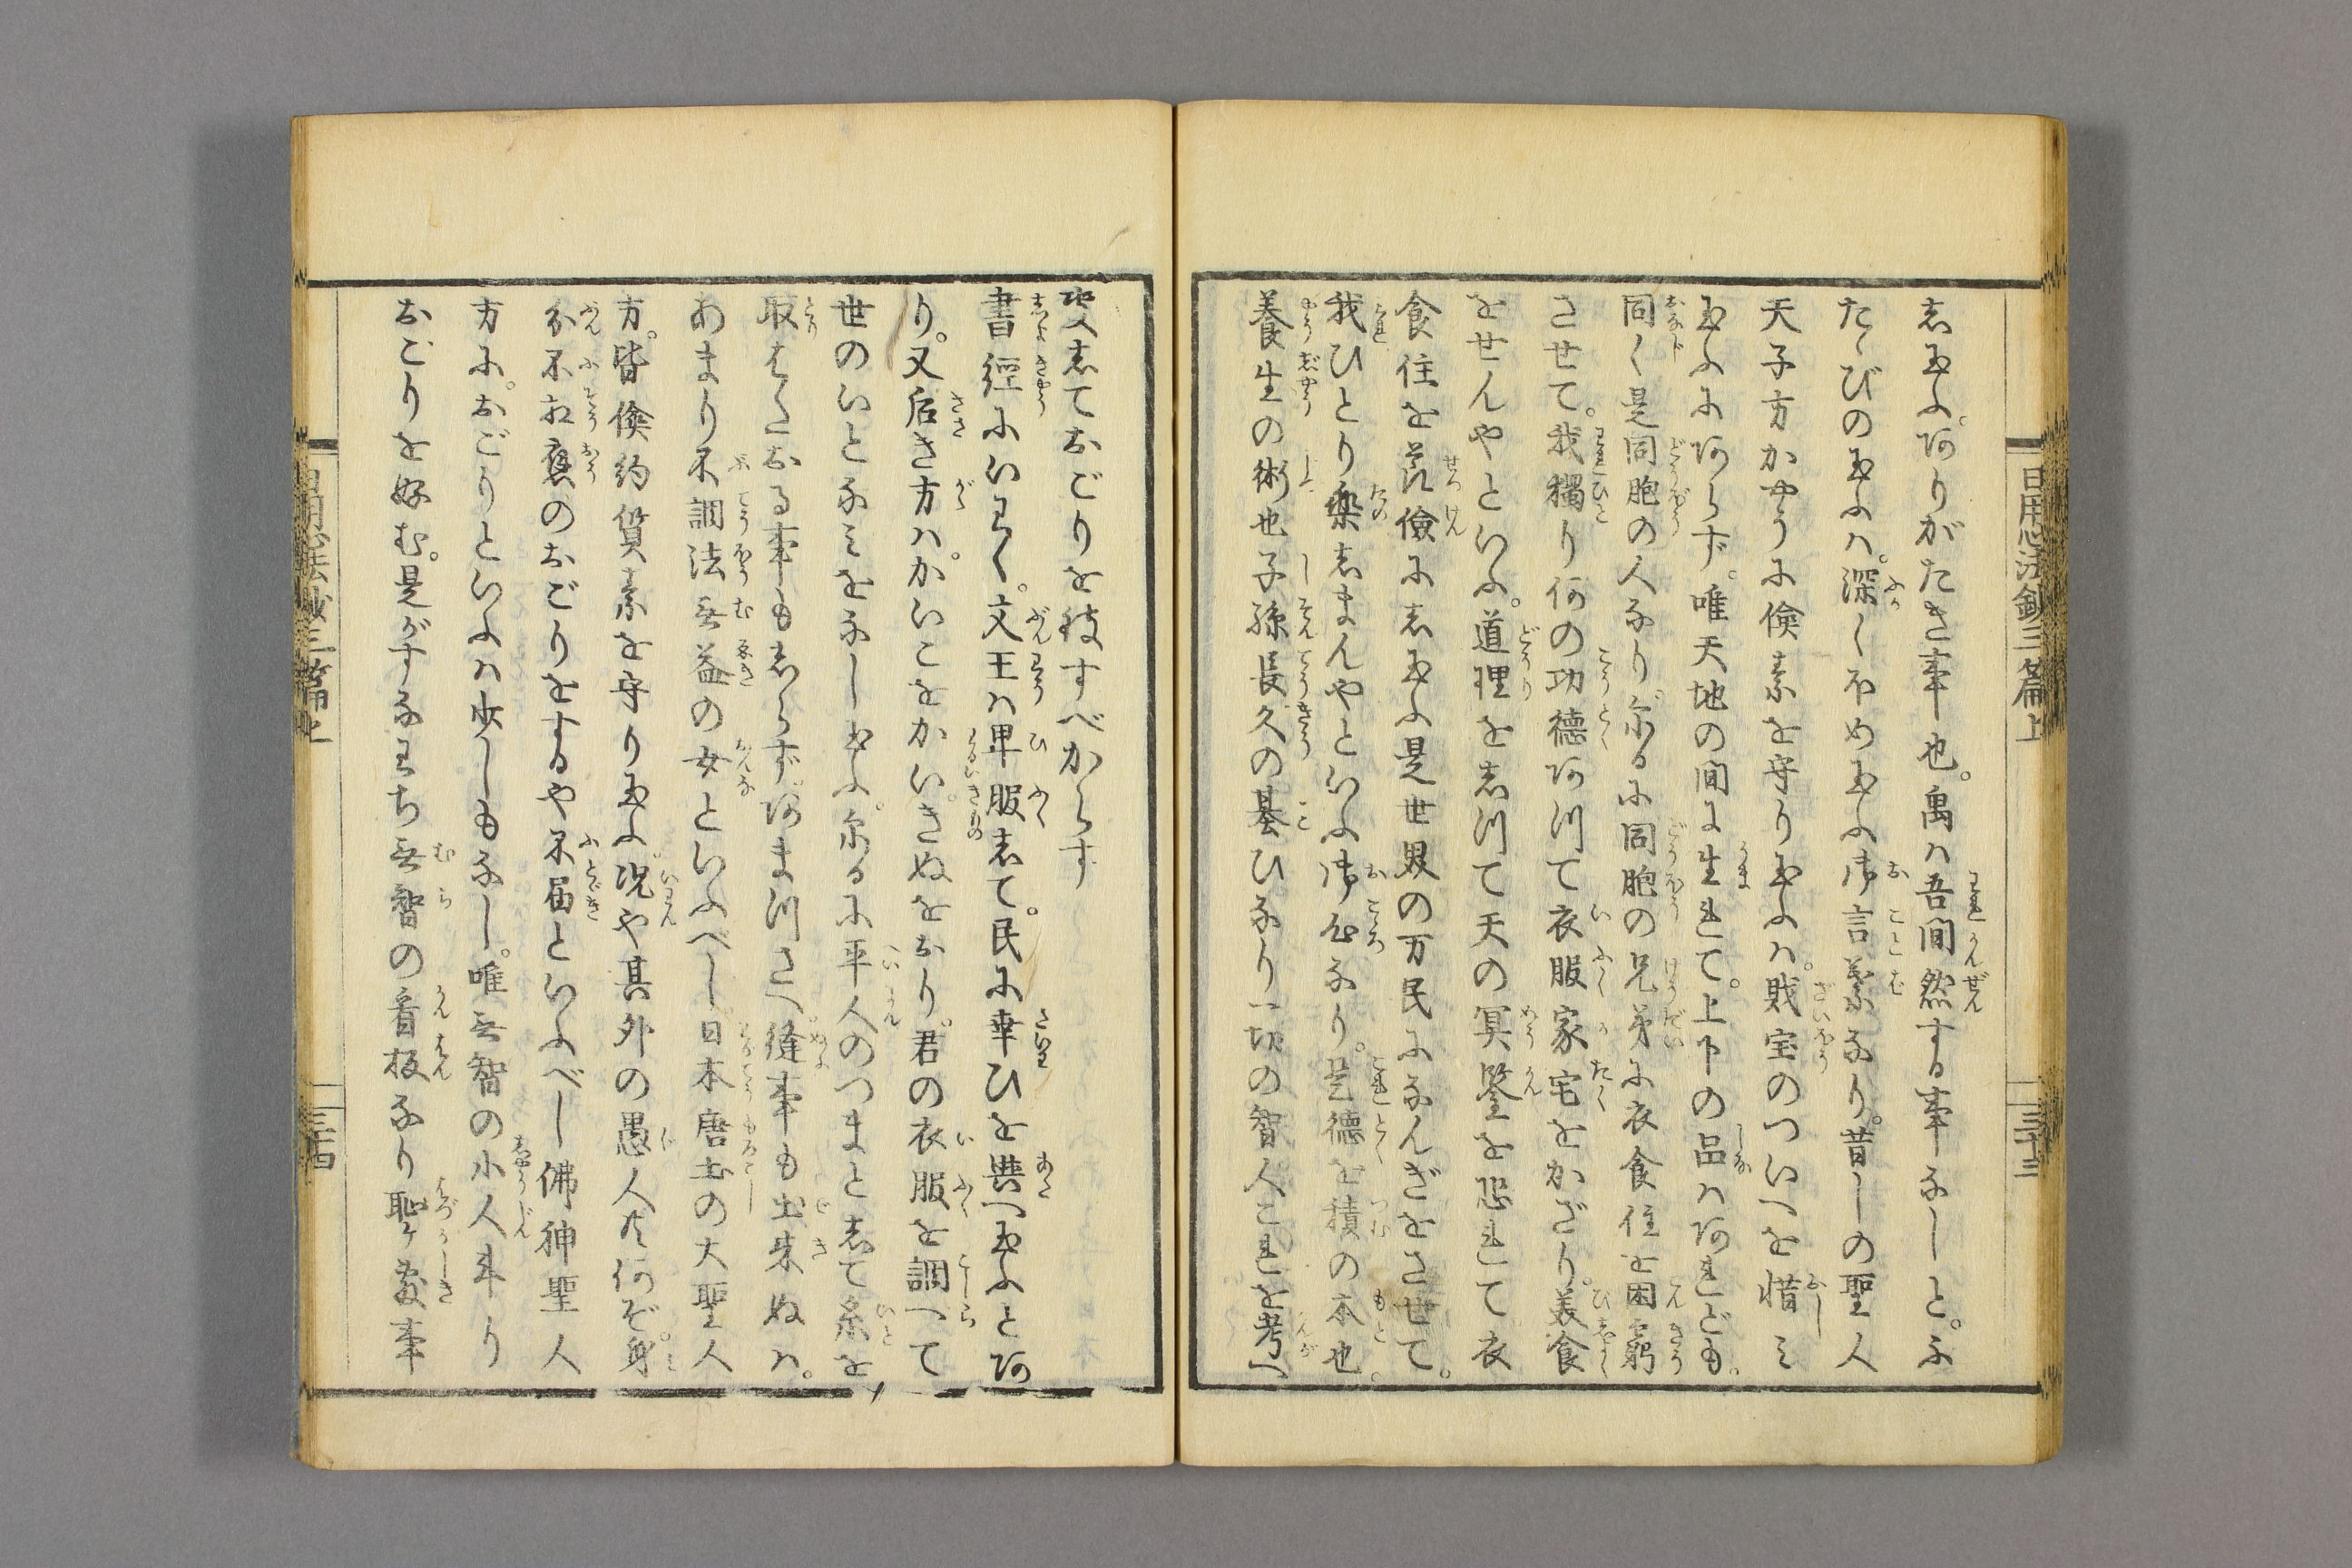 日用心法鈔三篇上
三十三
志玉ふ。阿りがたき事也。禹ハ吾間然する事なしと。ふ
たゝびの玉ふハ。深くほめ玉ふ御言葉なり。昔しの聖人
天子方かやうに倹素を守り玉ふハ。財宝のついへを惜ミ
玉ふに阿らず。唯天地の間に生れて。上下の品ハ阿れども。
同く是同胞の人なり。尓るに同胞の兄弟に衣食住を困窮
させて。我獨り何の功徳阿つて衣服家宅をかざり。美食
をせんやといふ。道理を志つて天の冥鑒を恐れて衣
食住を節儉に志玉ふ是世界の万民になんぎをさせて。
我ひとり樂志まんやといふ御心なり。是徳を積の本也。
養生の術也子孫長久の基ひなり一切の智人これを考へ
堅志ておごりを致すべからす
書經にいはく。文王ハ卑服志て。民に幸ひを與へ玉ふと阿
り。又后き方ハ。かいこをかい。きぬをおり。君の衣服を調へて
世のいとなミをなし玉ふ。尓るに平人のつまと志て糸を
取はたおる事も志らず。阿まつさへ縫事も出来ぬハ。
あまり不調法無益の女といふべし日本唐土の大聖人
方。皆倹約質素を守り玉ふ。况や其外の愚人共何ぞ。身
分不相應のおごりをするや不届といふべし佛神聖人
方に。おごりといふハ少しもなし。唯無智の小人斗り
おごりを好む。是がすなはち無智の看板なり恥ケ敷事
日用心法鈔三篇上
三十四